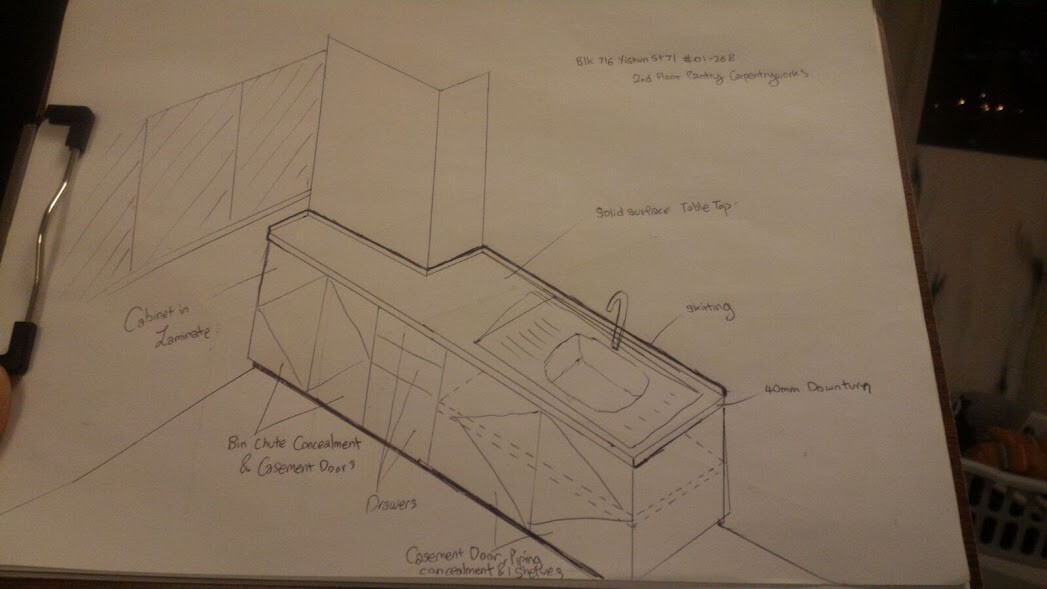 Blk 716 Yishun St 71 #01-268
2nd Floor Pantry Carpentryworks
Solid surface Table Top
skirting
40mm Downturn
Cabinet in
Laminate
Bin Chute Concealment
& Casement Doors
Drawers
Casement Door, Piping
concealment & 1 shelves